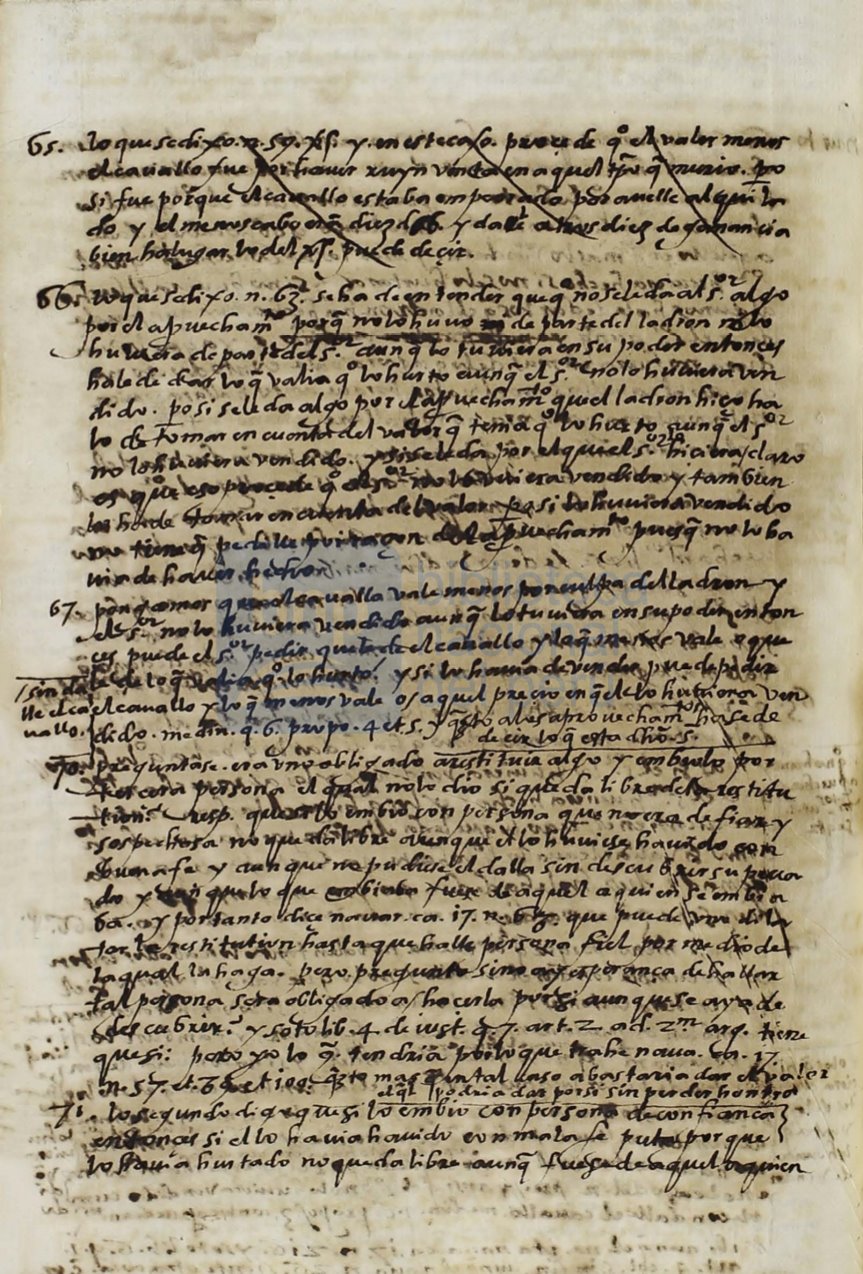 65. lo que se dixo. n. 59. xſ. y. en este caso. procede q.º el valer menos
el cavallo fue por haver ruyn venta en aquel tpõ q̃ murio. po
si fue porque el cavallo estaba empeorado por avelle alquila
do y el menoscabo diez y dalle diez de ganancia
bien ha lugar lo del puede decir.
66. lo que se dixo. n. 63. se ha de entender que q.º no se le da al s.ºʳ algo
por el apuecham.ᵗᵒ porq̃ no lo huvo de parte del ladron ni lo
huviera de parte del s.ºʳ aunq̃ lo tuviera en su poder entonces
hale de dar lo q̃ valia q.º lo hurto aunq̃ el s.ºʳ no lo huviera ven
dido. po si se le da algo por el apuecham.ᵗᵒ que el ladron hizo ha
lo de tomar en cuenta del valor q̃ tenia q.º lo hurto aunq̃ el s.ºʳ
no lo huviera vendido. y si se le da por el que el s.ºʳ hiciera claro
es que eso procede q.º el s.ºʳ no lo uviera vendido y tambien
los ha de tomar en cuenta del valor. po si lo huviera vendido
no tiene q̃ pedille por razon del apuecham.ᵗᵒ puesq̃ no lo ha
via de haver hecho.
67. pongamos que el cavallo vale menos por culpa del ladron y
el s.ºʳ no lo huviera vendido aunq̃ lo tuviera en su poder enton
ces puede el s.ºʳ pedir que le de el cavallo y lo q̃ menos vale o que
le de lo q̃ valia q.º lo hurto. y si lo havia de vender puede pedir
sin da
lle el ca
vallo.
el cavallo y lo q̃ menos vale o aquel precio en q̃ el lo huviera ven
dido. medin. q. 6. y q̃to a los aprovecham.ᵗᵒˢ hase de
decir lo q̃ esta dho. s.
70. preguntase. era uno obligado a restituir algo y embiolo por
tercera persona el qual no lo dio si queda libre de la restitu
tion. resp. que si lo embio con persona que no era de fiar y
sospechosa no queda libre aunque el lo huviese havido con
buena fe y aunque no pudiese el dalla sin descubrir su peca
do y aunque lo que embiaba fuese de aquel a quien se embia
ba. y por tanto dice navar. ca. 17. n. que puede uno dila
tar la restitution hasta que halle persona fiel por medio de
la qual la haga. pero pregunto si no ay esperança de hallar
tal persona sera obligado a hacerla por si aunque se aya de
descubrir. y soto lib. 4. de iust. q. 7. art. 2. ad. 2.ᵐ arg. tiene
que si: pero yo lo q̃. tendria por lo que trahe nava. ca. 17.
n. 57. et. en tal caso abastaria dar el valor
podria dar por si sin perder honrra
71. lo segundo digo que si lo embio con persona de confiança
entonces si el lo havia havido con mala fe puta porque
lo havia hurtado no queda libre aunq̃ fuese de aquel a quien